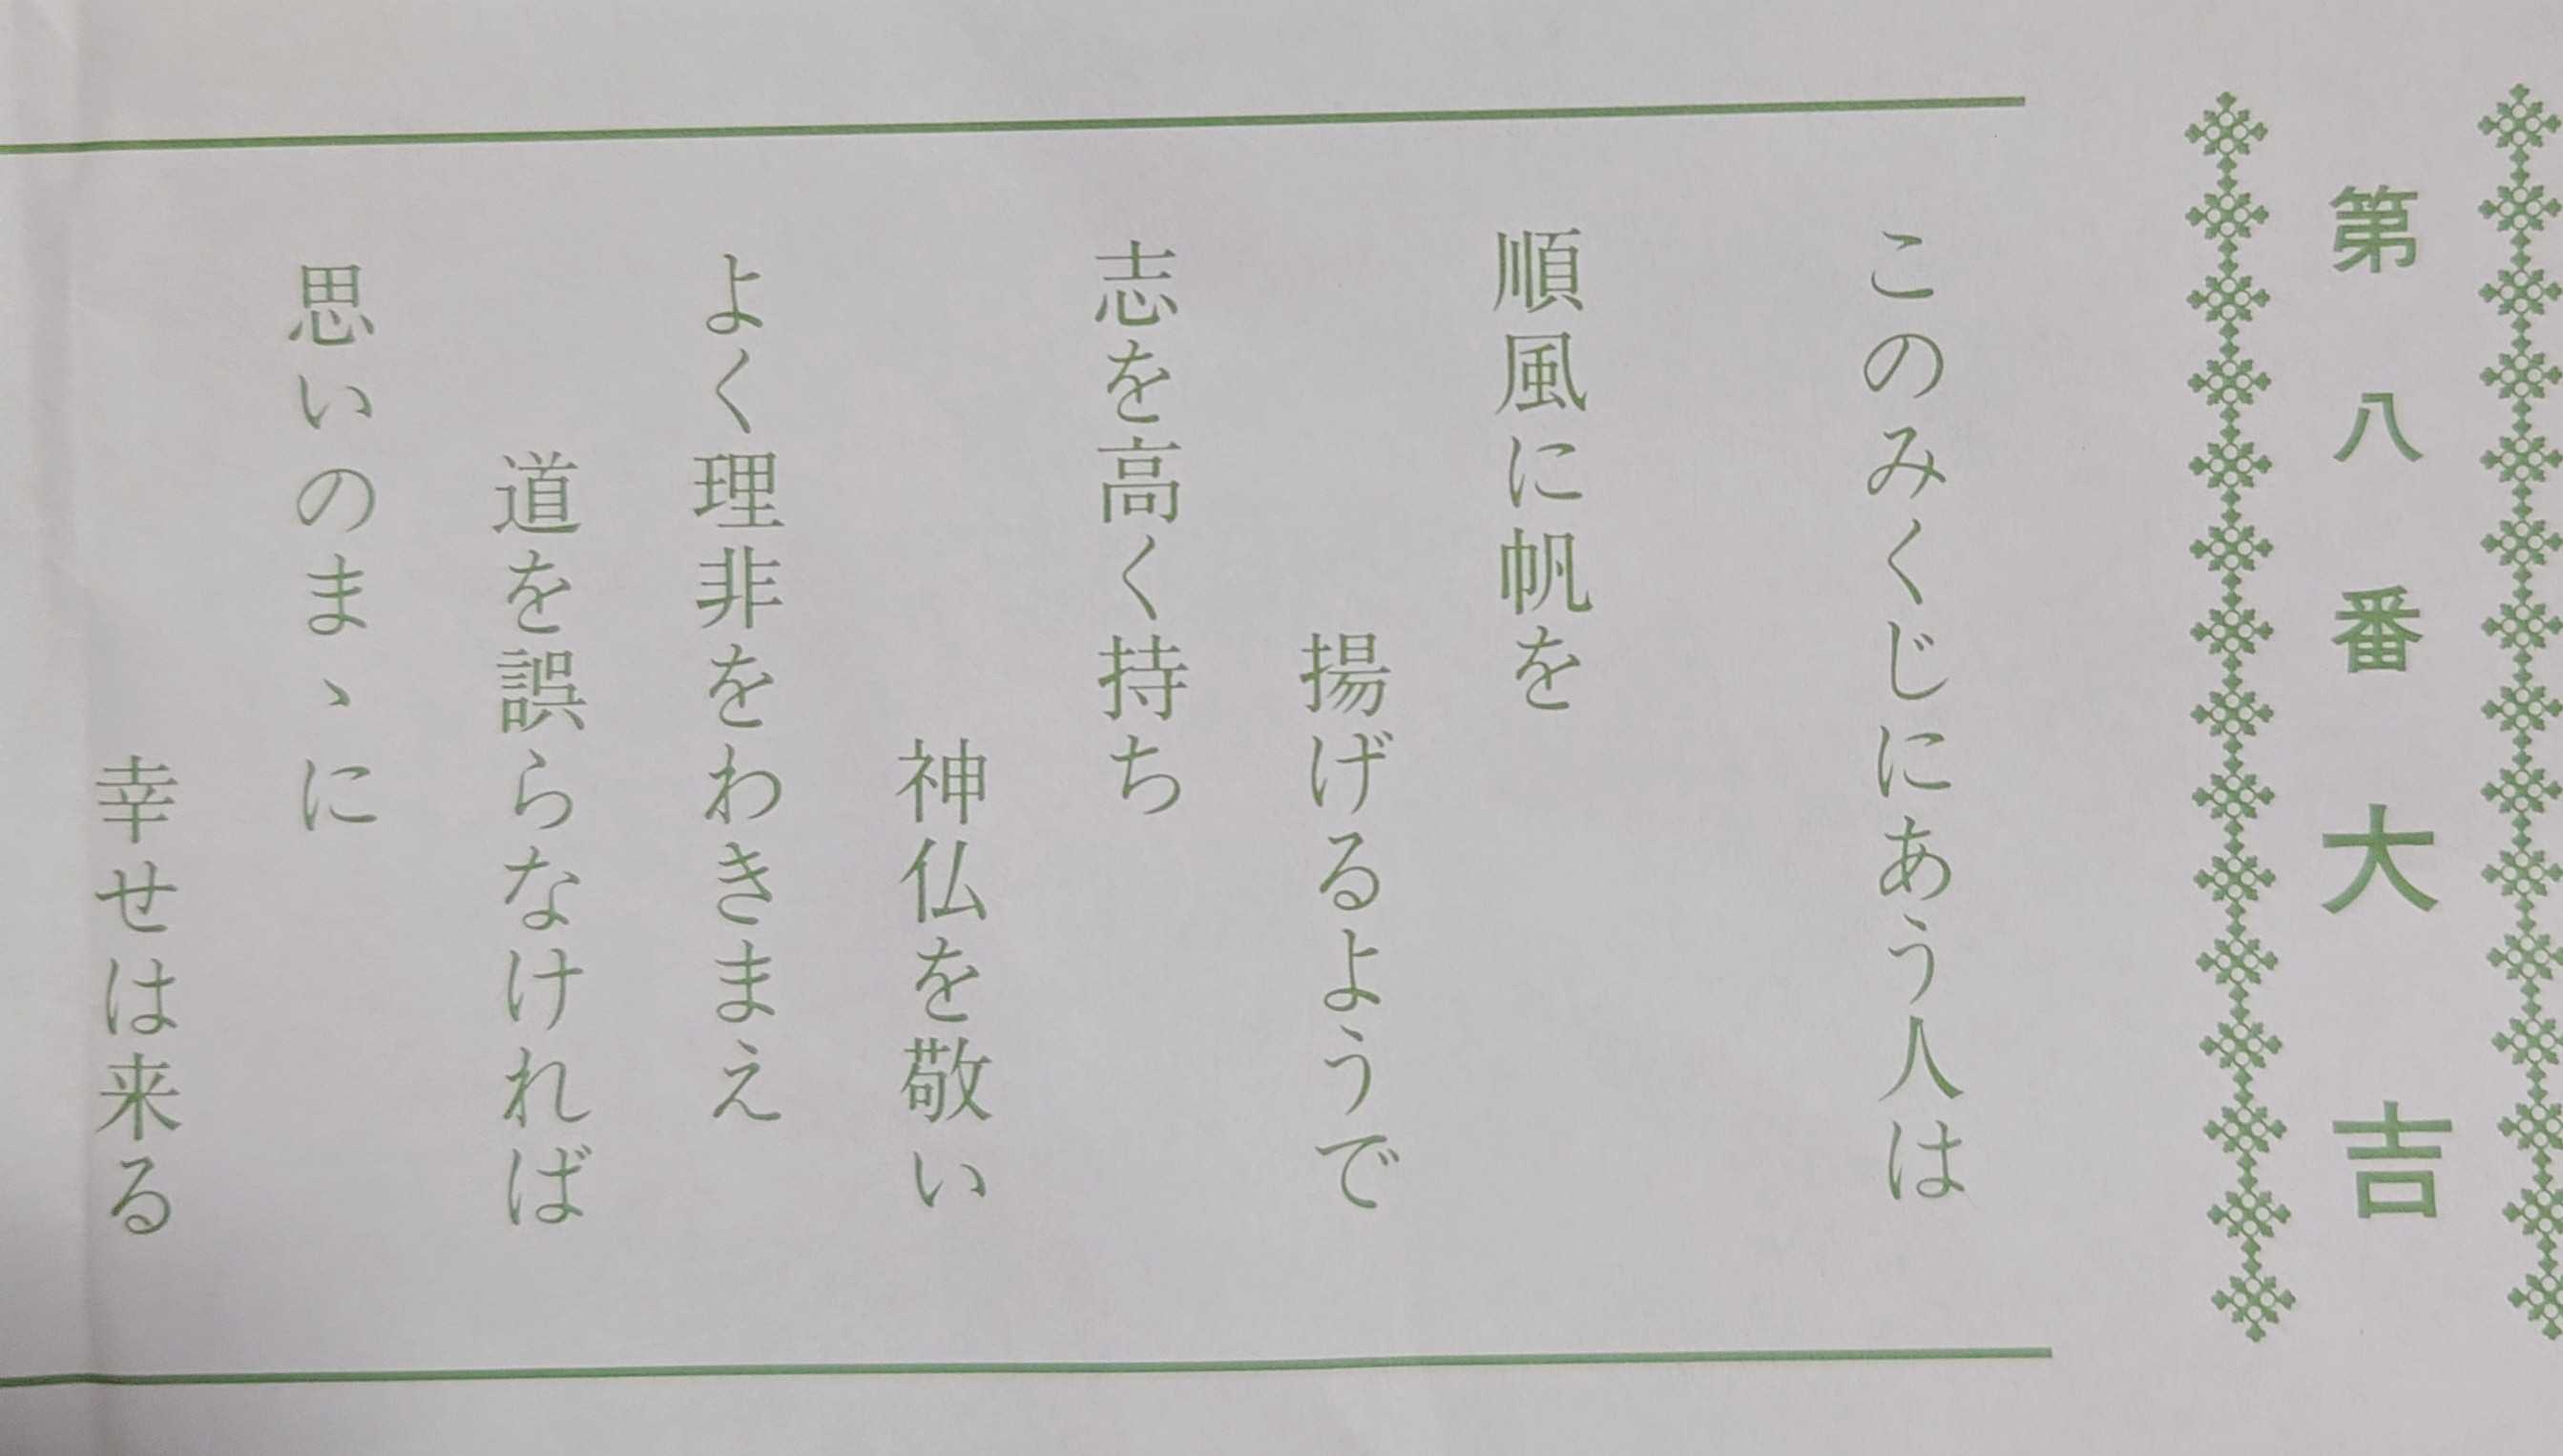 第八番大吉
このみくじにあう人は
順風に帆を
揚げるようで
志を高く持ち
神仏を敬い
よく理非をわきまえ
道を誤らなければ
思いのまゝに
幸せは来る